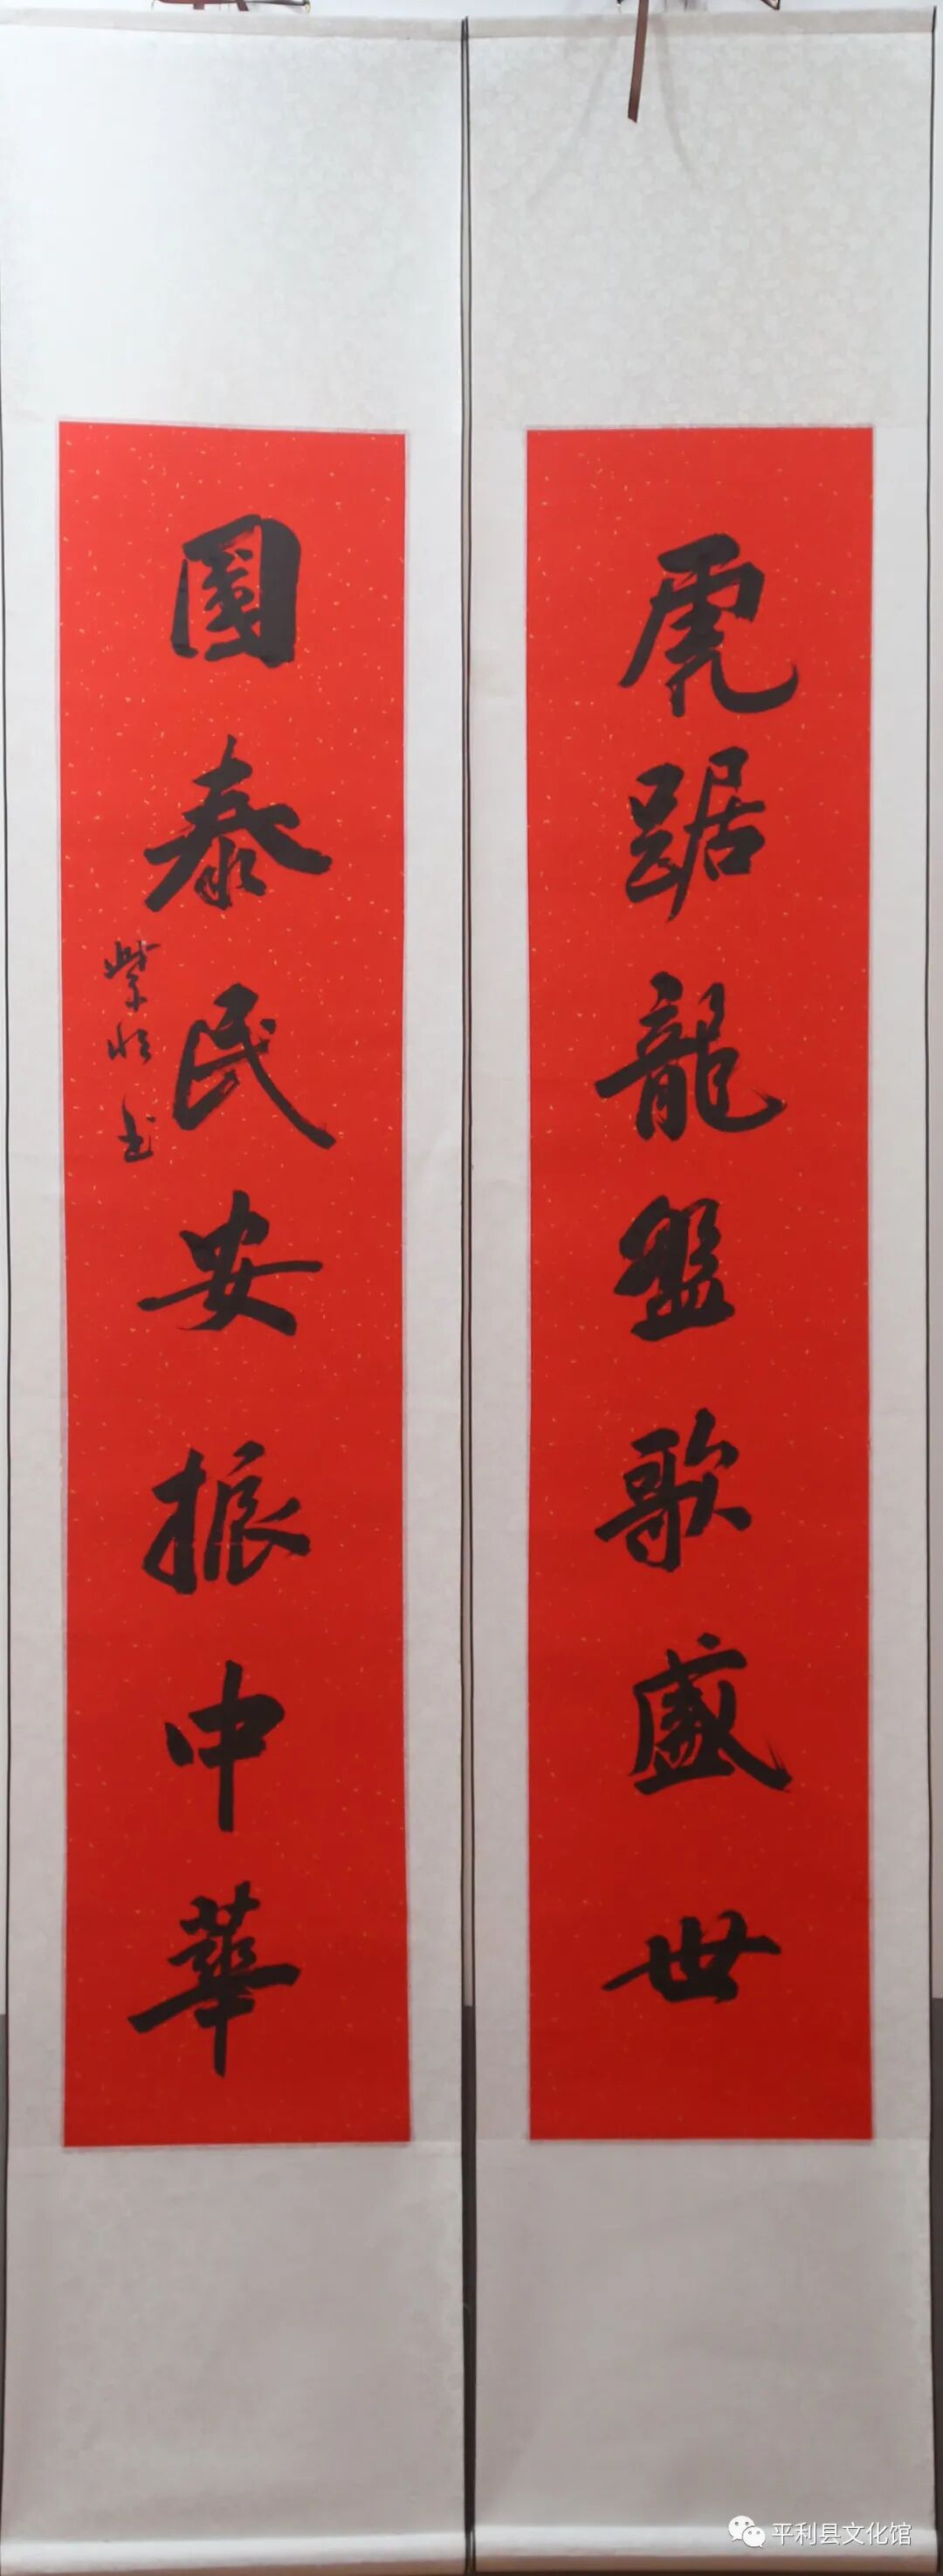 虎踞龍盤歌盛世
國泰民安振中華
紫恒书
平利县文化馆